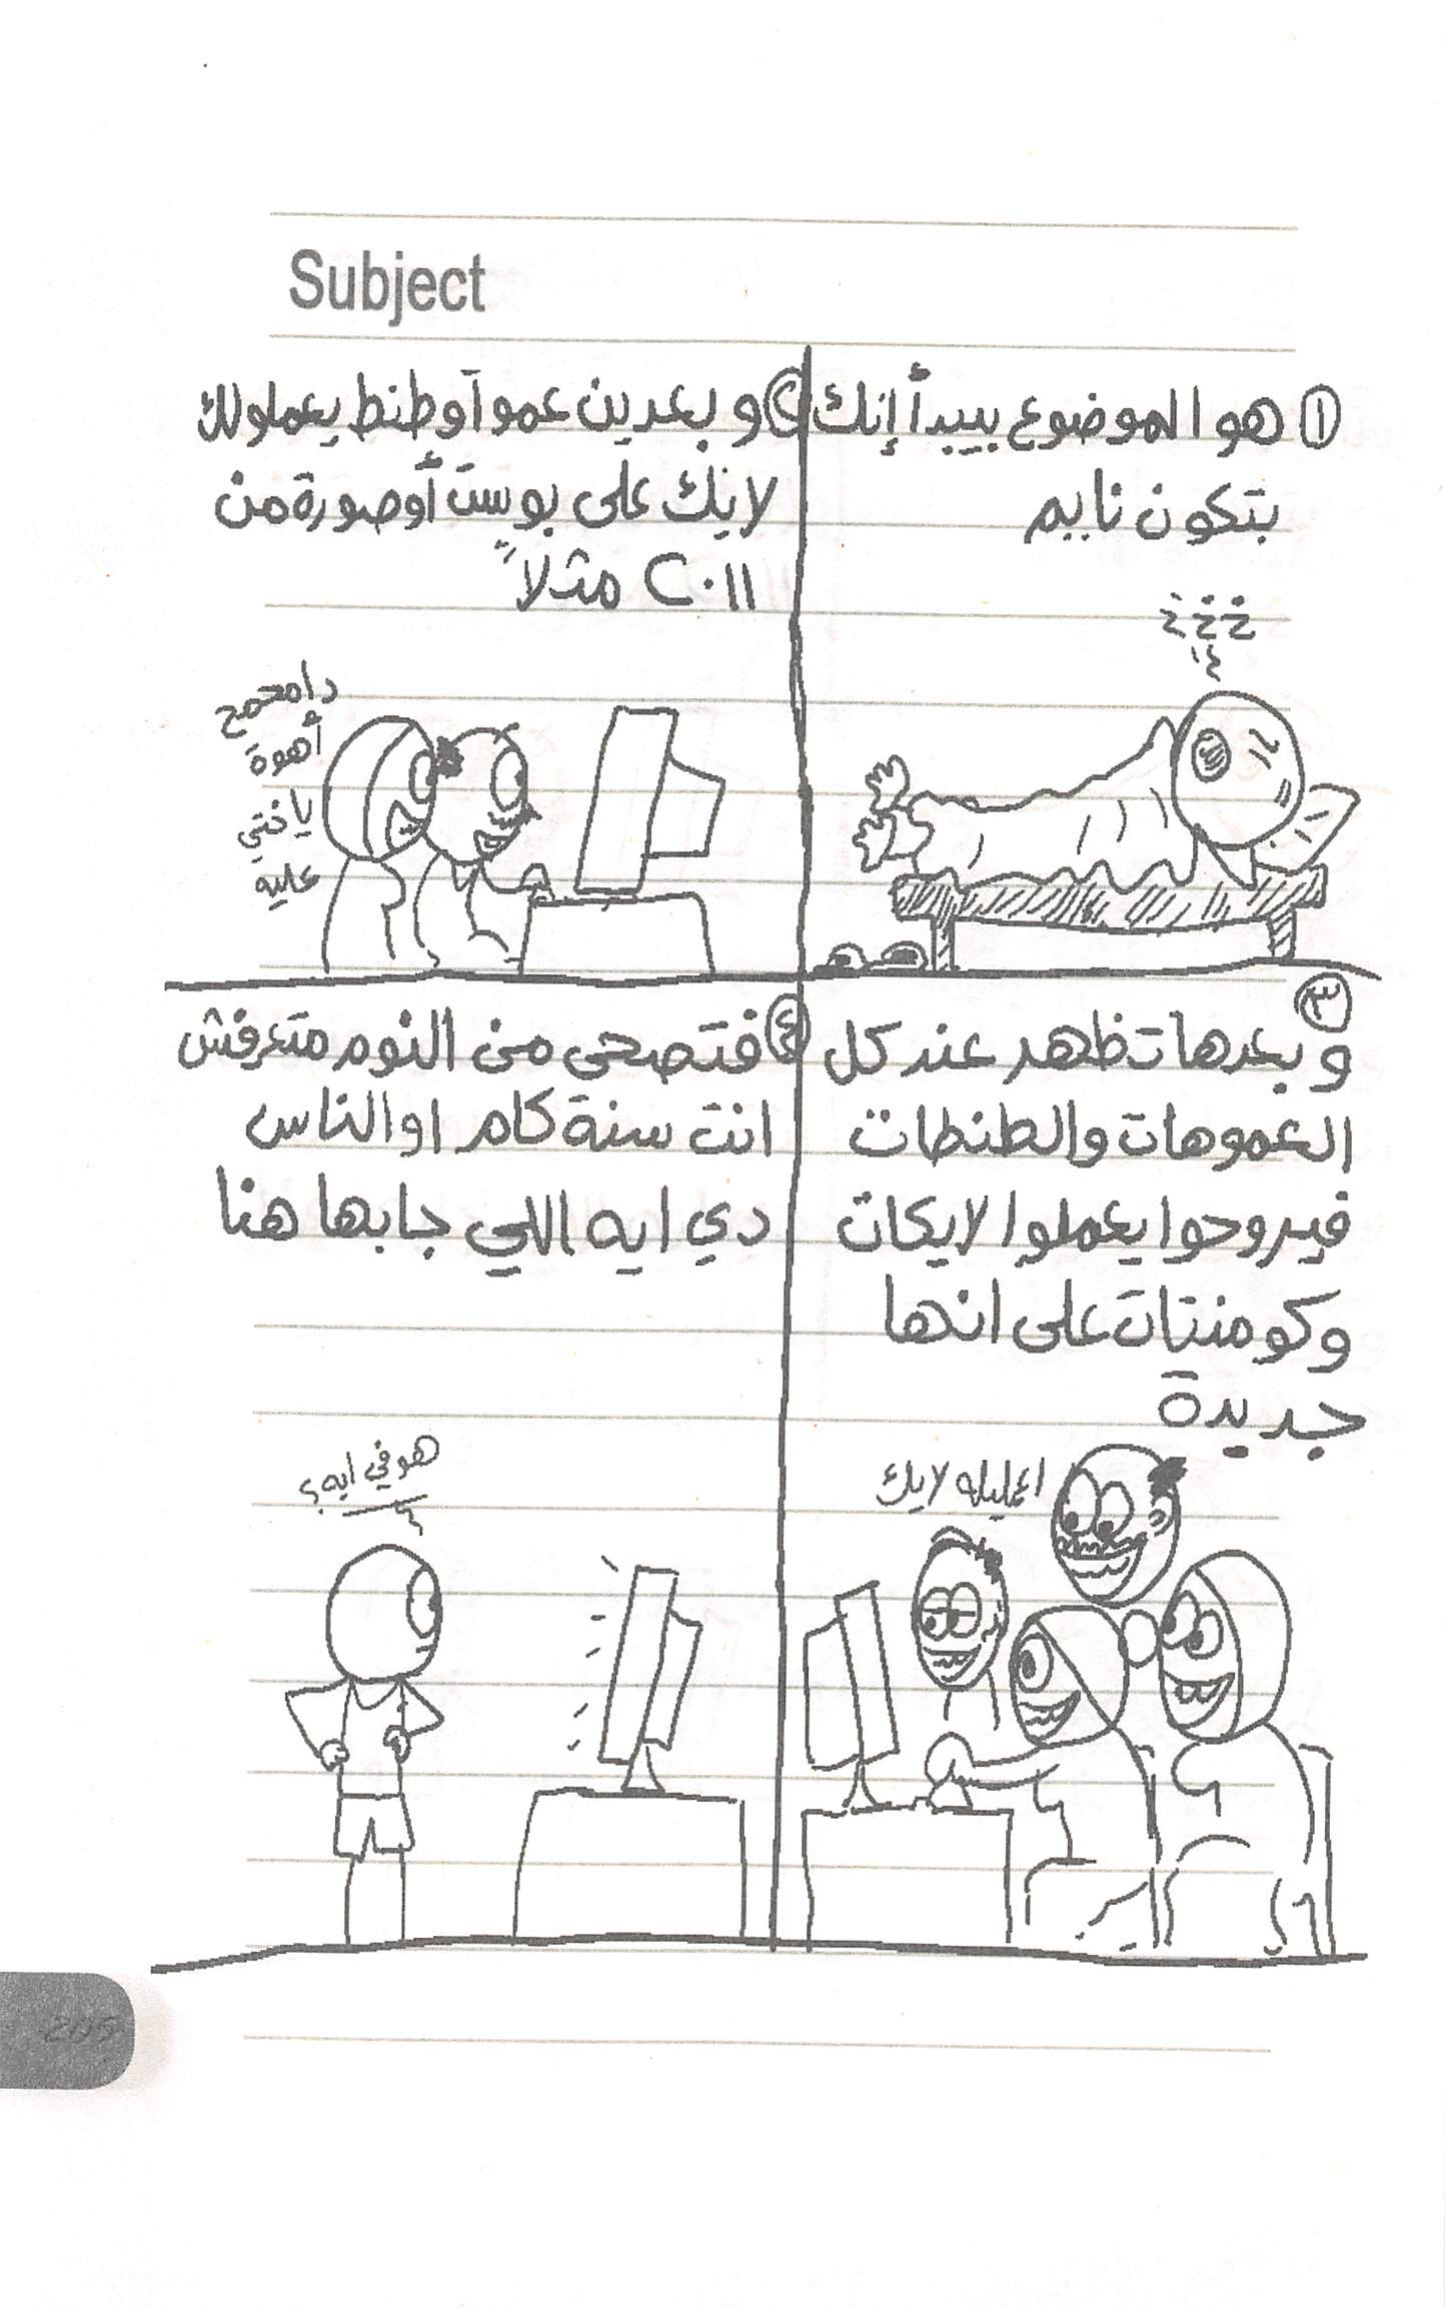 Subject
① هو الموضوع بيبدأ إنك
بتكون نايم
خخخ
② وبعدين عمو أو طنط يعملولك
لايك على بوست أو صورة من
٢٠١١ مثلاً
دا محمح
أهوة
يا ختي
عليه
③
وبعدها تظهر عند كل
العموهات والطنطات
فيروحوا يعملوا لايكات
وكومنتات على انها
جديدة
اعمليله لايك
④ فتصحى من النوم متعرفش
انت سنة كام او الناس
دي ايه اللي جابها هنا
هو في ايه؟
205